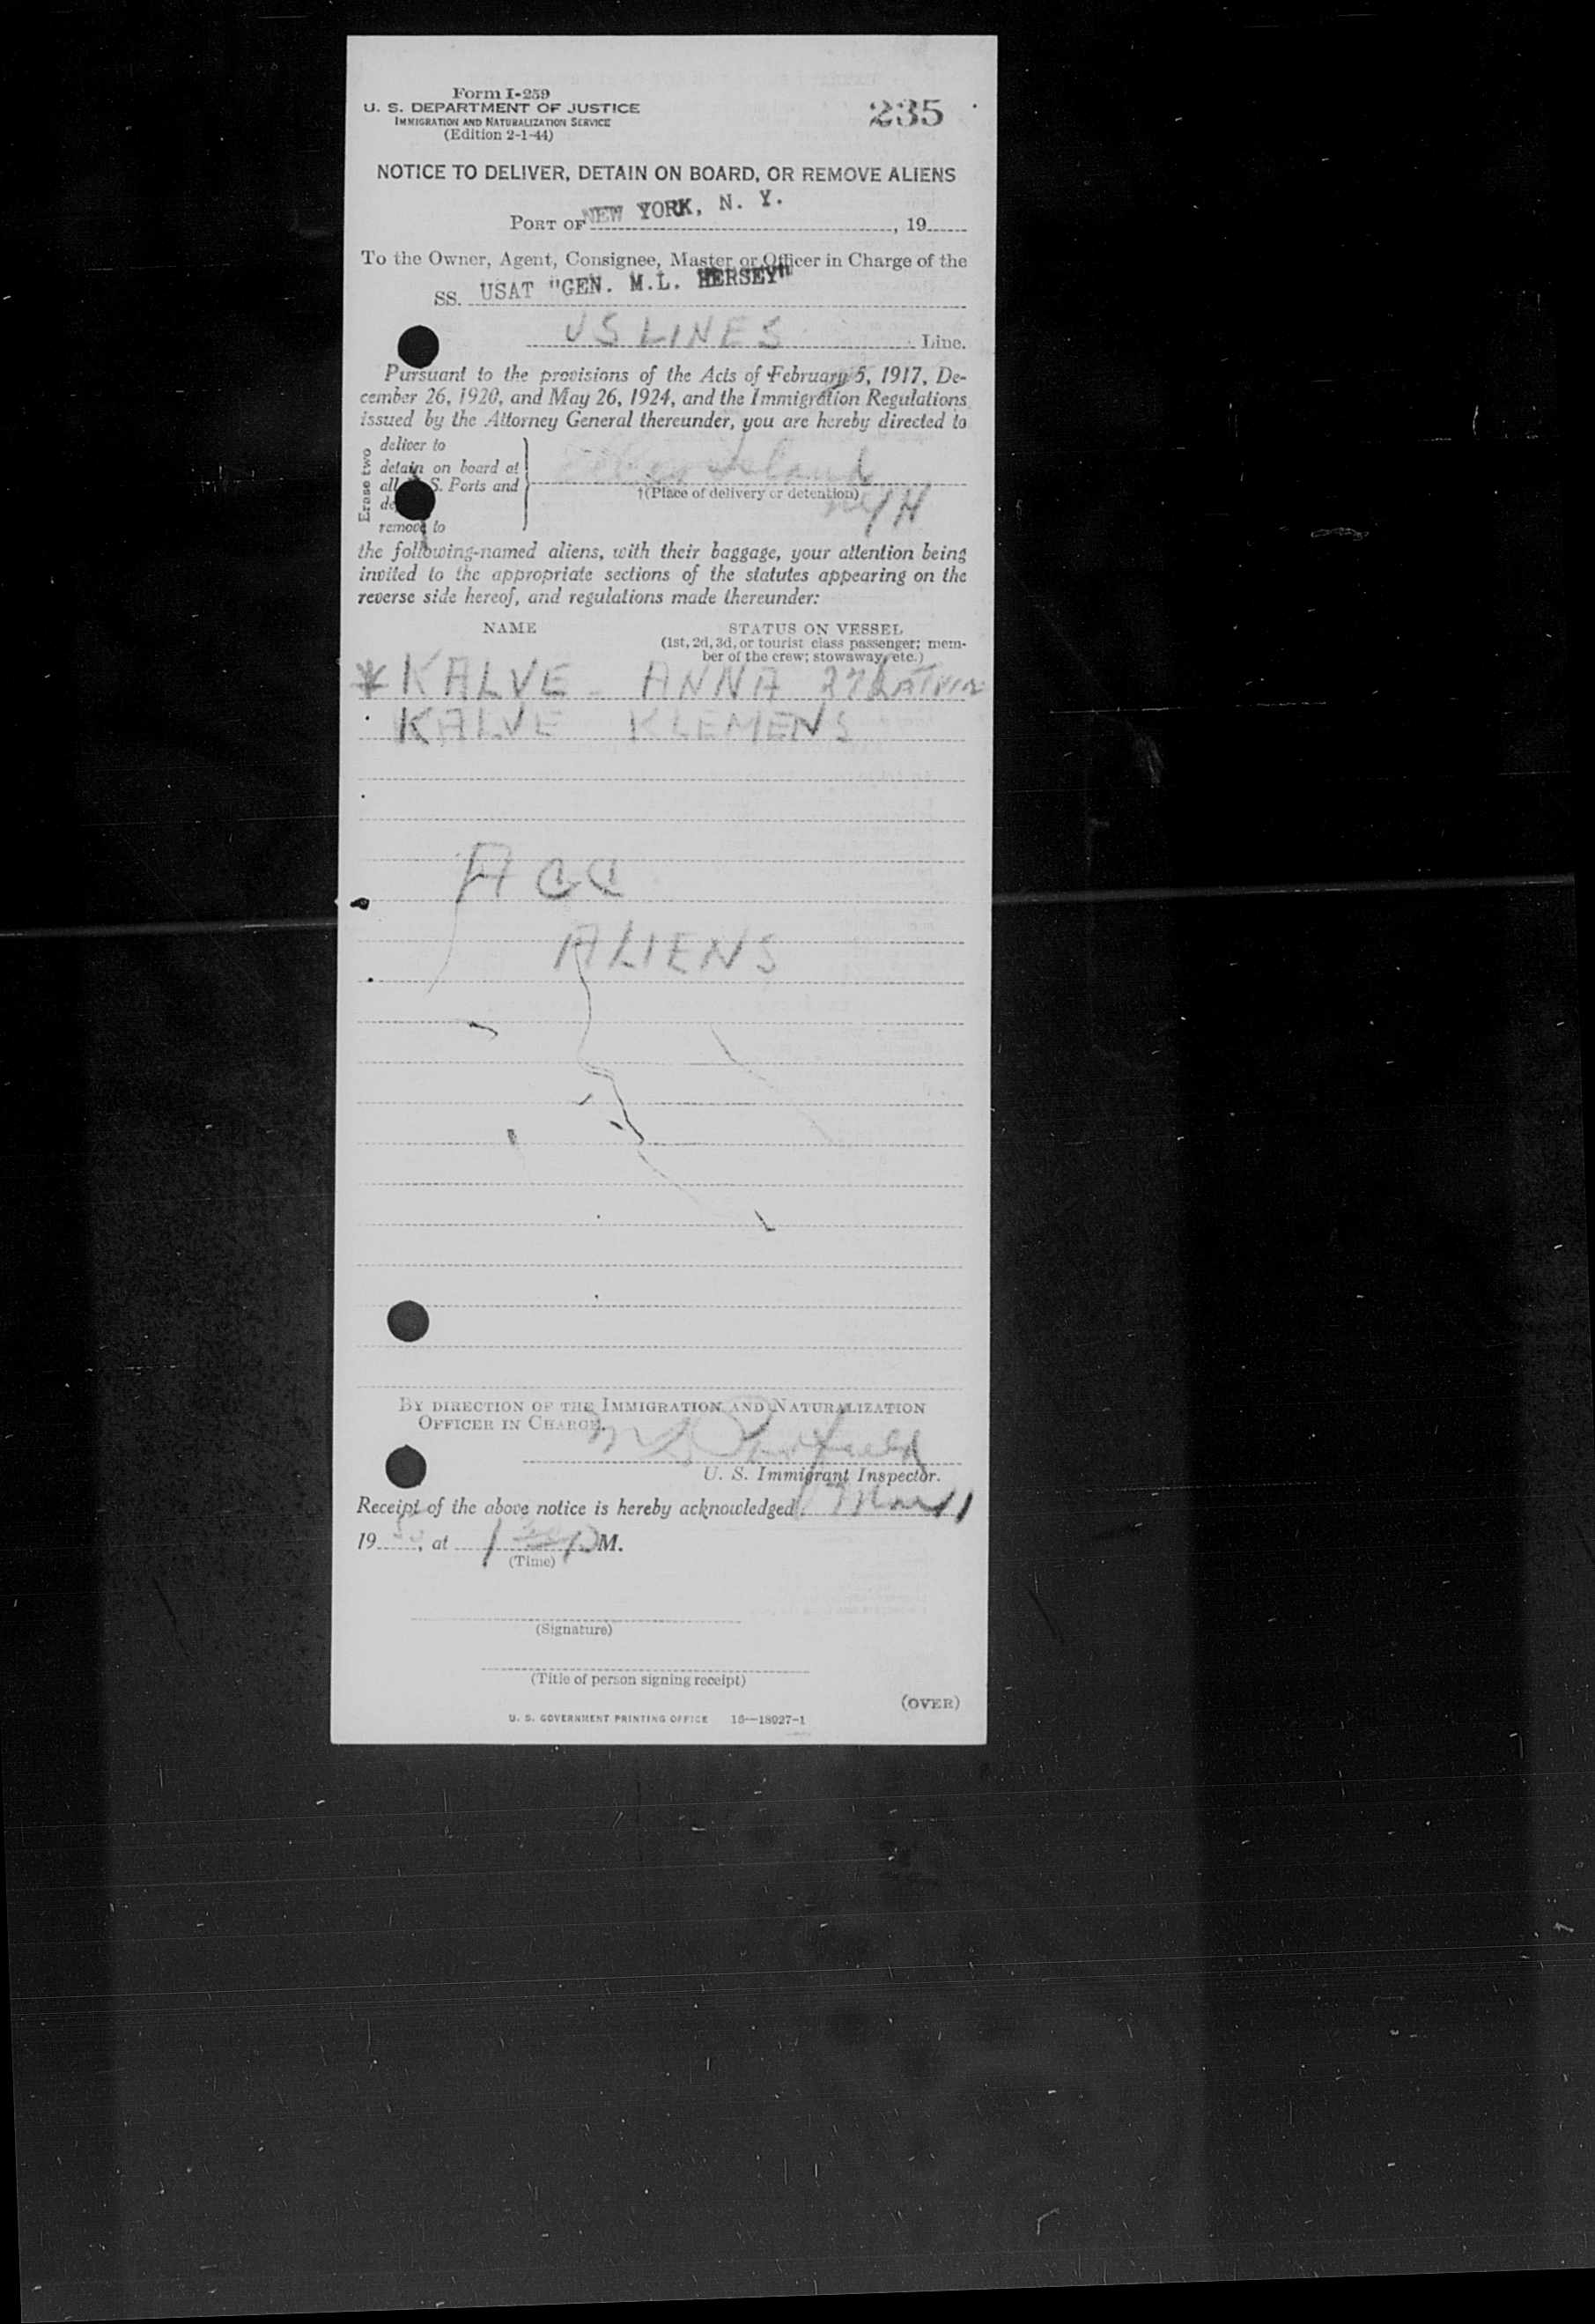 Form I-259
U. S. DEPARTMENT OF JUSTICE
IMMIGRATION AND NATURALIZATION SERVICE
(Edition 2-1-44)
235
NOTICE TO DELIVER, DETAIN ON BOARD, OR REMOVE ALIENS
PORT OF NEW YORK, N. Y. , 19
To the Owner, Agent, Consignee, Master or Officer in Charge of the
SS. USAT "GEN. M.L. HERSEY"
US LINES Line.
Pursuant to the provisions of the Acts of February 5, 1917, De-
cember 26, 1920, and May 26, 1924, and the Immigration Regulations
issued by the Attorney General thereunder, you are hereby directed to
Erase two
deliver to
detain on board at
all S. Ports and
remove to
Island
†(Place of delivery or detention)
the following-named aliens, with their baggage, your attention being
invited to the appropriate sections of the statutes appearing on the
reverse side hereof, and regulations made thereunder:
NAME STATUS ON VESSEL
(1st, 2d, 3d, or tourist class passenger; mem-
ber of the crew; stowaway, etc.)
* KALVE - ANNA 27
KALVE KLEMENS
ACC
ALIENS
BY DIRECTION OF THE IMMIGRATION AND NATURALIZATION
OFFICER IN CHARGE.
U. S. Immigrant Inspector.
Receipt of the above notice is hereby acknowledged
19 , at 1 P M.
(Time)
(Signature)
(Title of person signing receipt)
(OVER)
U. S. GOVERNMENT PRINTING OFFICE 16—18927-1